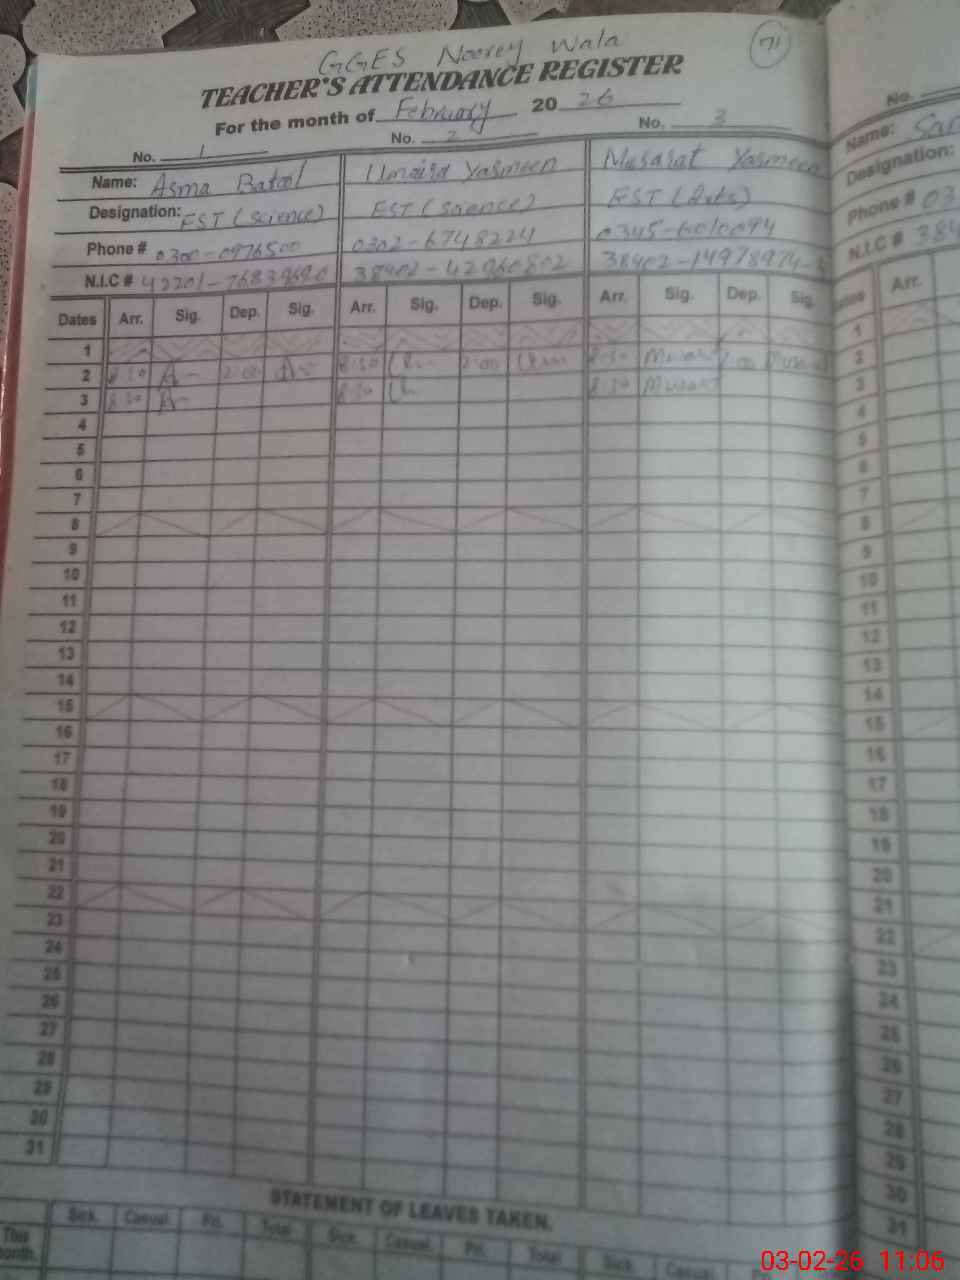 71
GGES Noorey Wala
TEACHER'S ATTENDANCE REGISTER
For the month of February 2026
No. 1 No. 2 No. 3
Name: Asma Batool Umaira Yasmeen Musarat Yasmeen
Designation: EST (Science) EST (Science) EST (Arts)
Phone # 0300-0976500 0302-6748224 0345-6010094
N.I.C # 42201-76839690 38402-42960802 38402-14978974-
Dates Arr. Sig. Dep. Sig. Arr. Sig. Dep. Sig. Arr. Sig. Dep. Sig.
1
2 8:30 2:00 8:30 2:00 8:30 Musarat 2:00 Musarat
3 8:30 8:30 8:30 Musarat
4
5
6
7
8
9
10
11
12
13
14
15
16
17
18
19
20
21
22
23
24
25
26
27
28
29
30
31
STATEMENT OF LEAVES TAKEN.
Sick. Casual. Pri. Total Sick. Casual. Pri. Total Sick. Casual.
This
month.
No.
Name:
Designation:
Phone # 03
N.I.C # 384
Arr.
1
2
3
4
5
6
7
8
9
10
11
12
13
14
15
16
17
18
19
20
21
22
23
24
25
26
27
28
29
30
31
03-02-26 11:06